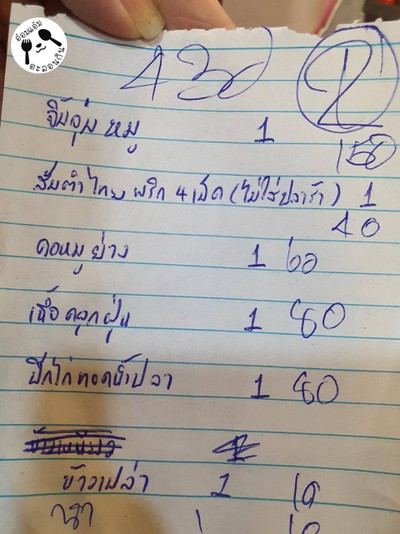 อ้อมแอ้ม
ตะลอนกิน
430 2
จิ้มจุ่มหมู 1
150
ส้มตำไทย พริก 4 เม็ด (ไม่ใส่ปลาร้า) 1
40
คอหมูย่าง 1 60
เนื้อคลุกฝุ่น 1 80
ปีกไก่ทอดน้ำปลา 1 80
ข้าวเปล่า 1 10
1 10